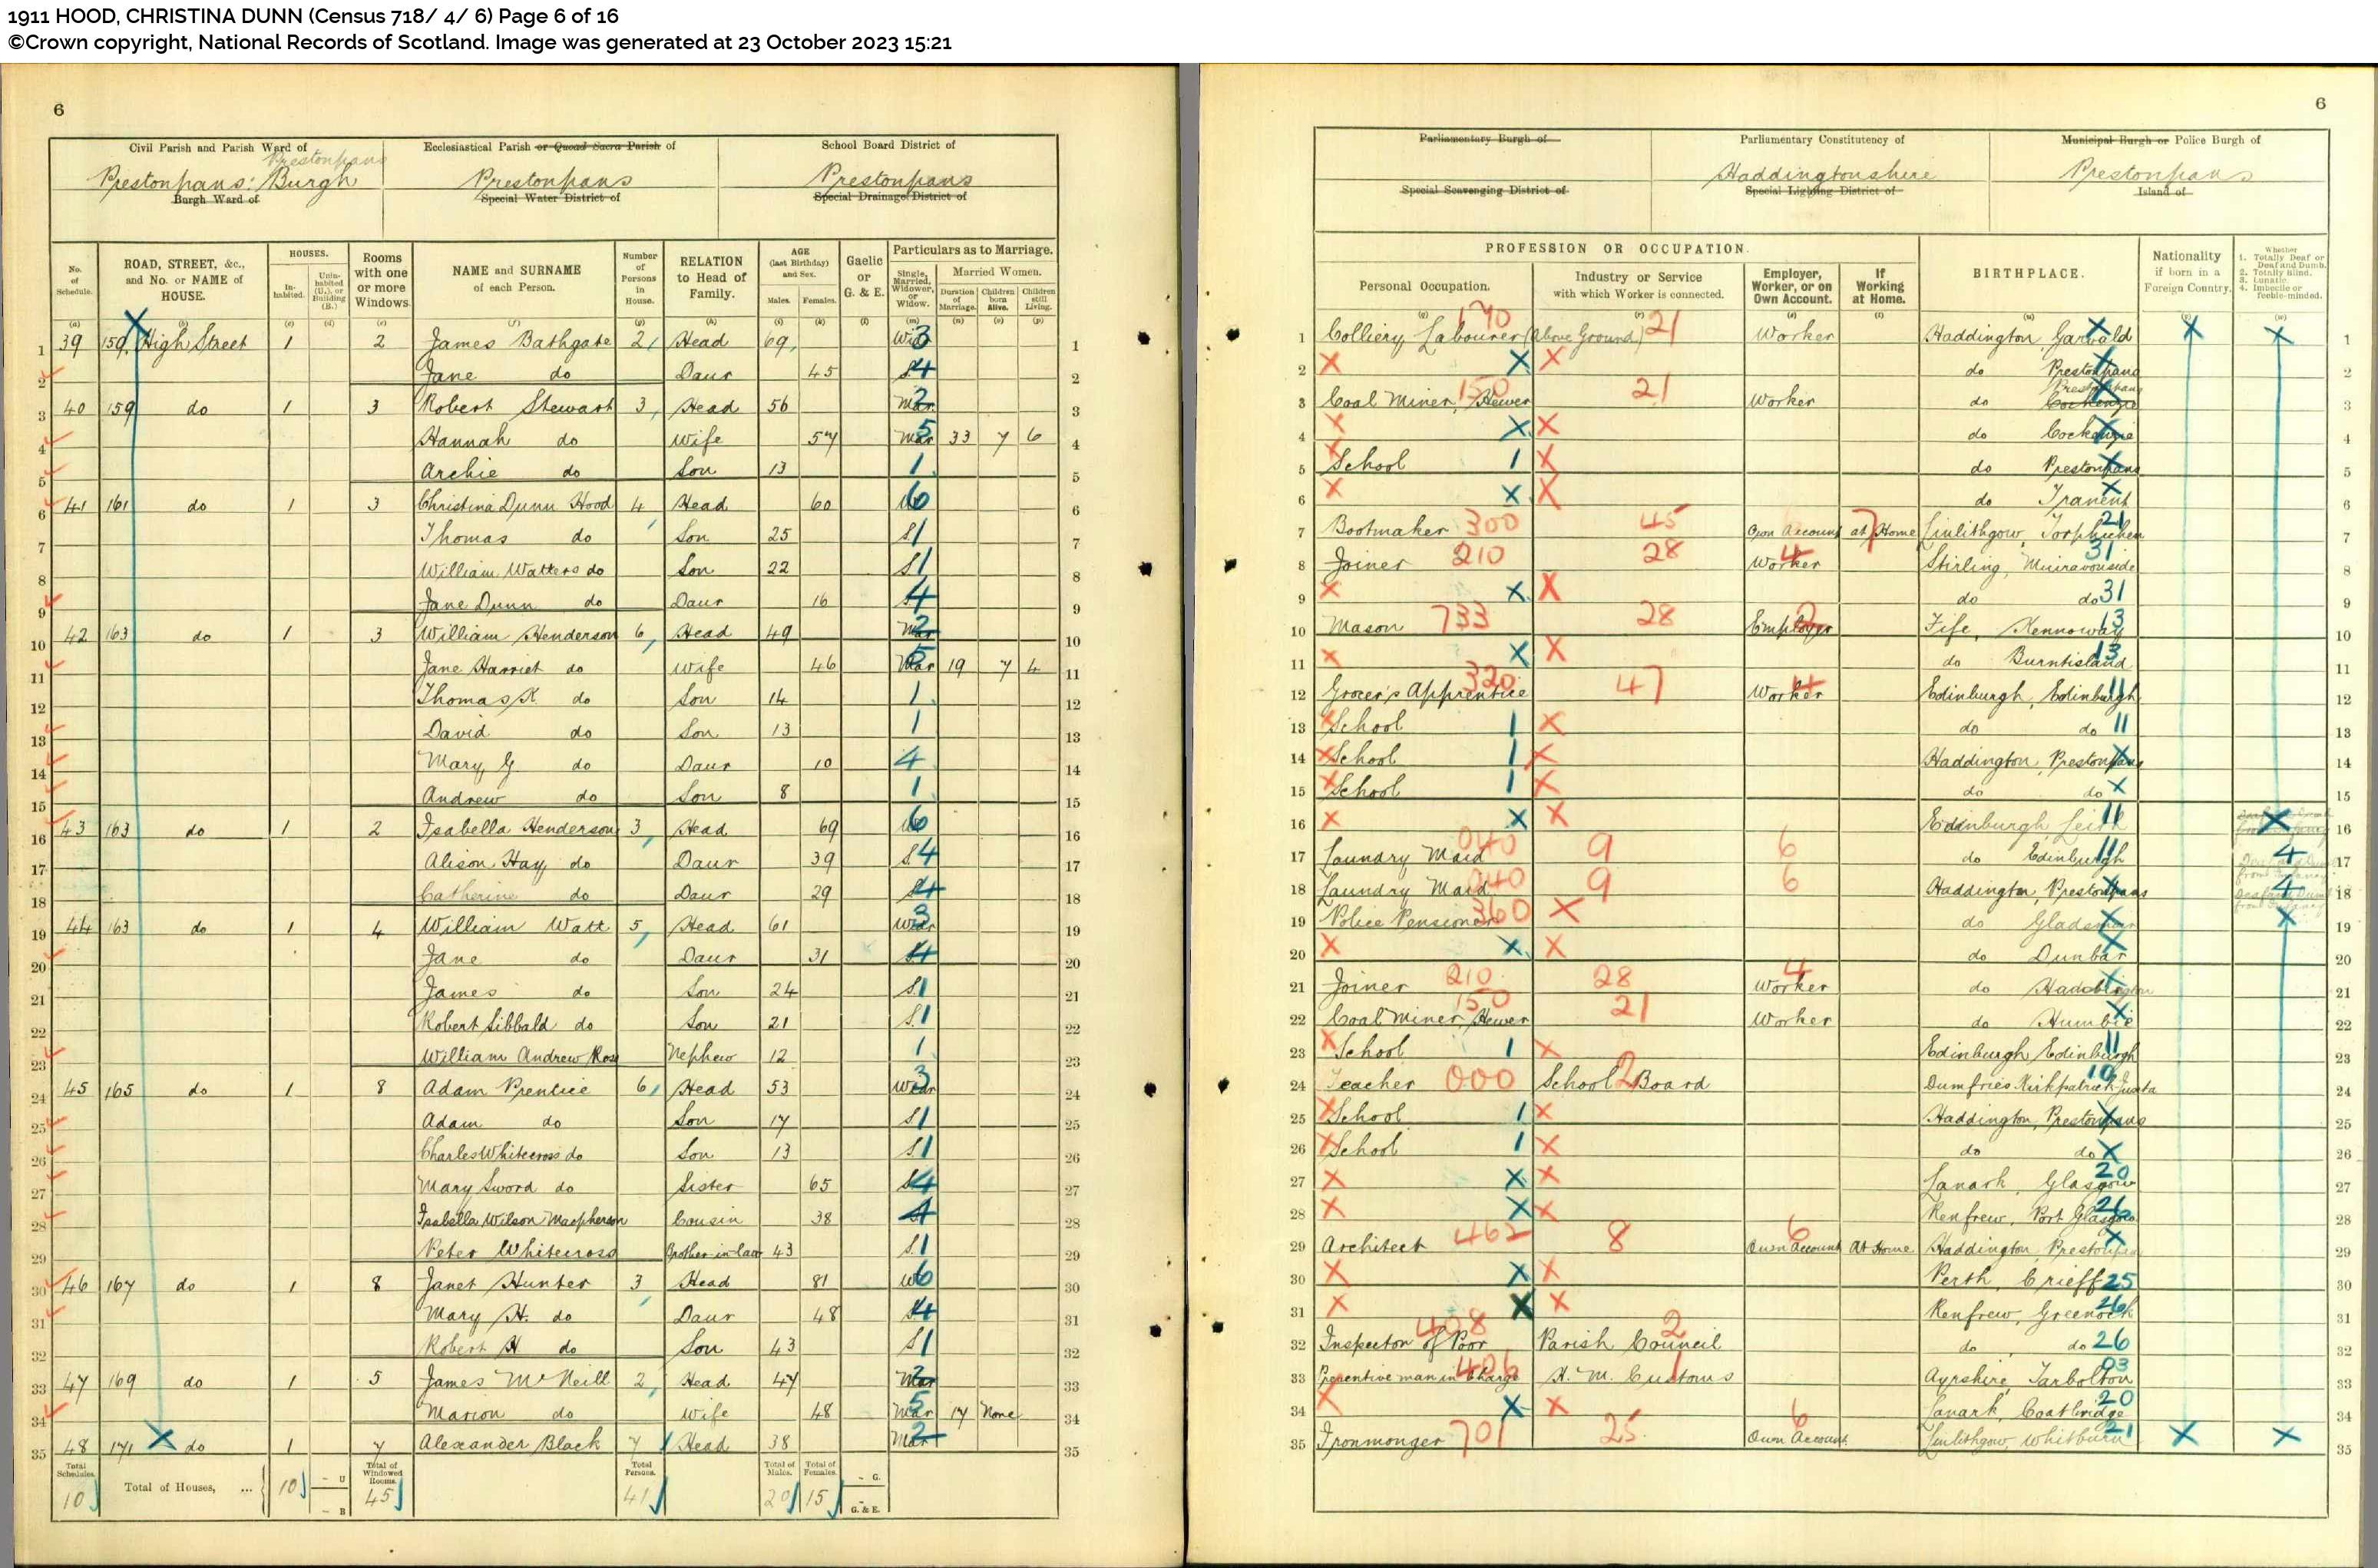 1911 HOOD, CHRISTINA DUNN (Census 718/ 4/ 6) Page 6 of 16
©Crown copyright, National Records of Scotland. Image was generated at 23 October 2023 15:21
6
6
Civil Parish and Parish Ward of
Prestonpans
Prestonpans: Burgh
Burgh Ward of
Ecclesiastical Parish or Quoad Sacra Parish of
Prestonpans
Special Water District of
School Board District of
Prestonpans
Special Drainage District of
Parliamentary Burgh of
Special Scavenging District of
Parliamentary Constitutency of
Haddingtonshire
Special Lighting District of
Municipal Burgh or Police Burgh of
Prestonpans
Island of
No. of Schedule.
ROAD, STREET, &c., and No. or NAME of HOUSE.
HOUSES.
In-habited.
Unin-habited (U.), or Building (B.)
Rooms with one or more Windows.
NAME and SURNAME of each Person.
Number of Persons in House.
RELATION to Head of Family.
AGE (last Birthday) and Sex.
Males. Females.
Gaelic or G. & E.
Particulars as to Marriage.
Single, Married, Widower, or Widow.
Married Women.
Duration of Marriage. Children born Alive. Children still Living.
PROFESSION OR OCCUPATION.
Personal Occupation.
Industry or Service with which Worker is connected.
Employer, Worker, or on Own Account.
If Working at Home.
BIRTHPLACE.
Nationality if born in a Foreign Country.
Whether 1. Totally Deaf or Deaf and Dumb. 2. Totally Blind. 3. Lunatic. 4. Imbecile or feeble-minded.
1 39 159 High Street 1 2 James Bathgate 2 Head 69 3 Colliery Labourer (Above Ground) 170 21 Worker Haddington, Garvald
2 Jane do Daur 45 S 4 do Prestonpans
3 40 159 do 1 3 Robert Stewart 3 Head 56 Mar 2 Coal Miner, Hewer 150 21 Worker do Cockenzie Prestonpans
4 Hannah do Wife 57 Mar 5 33 7 6 do Cockenzie
5 Archie do Son 13 1 School 1 do Prestonpans
6 41 161 do 1 3 Christina Dunn Hood 4 Head 60 6 do Tranent
7 Thomas do Son 25 S 1 Bootmaker 300 45 Own Account at Home 7 Linlithgow, Torphichen 21
8 William Watters do Son 22 S 1 Joiner 210 28 Worker 4 Stirling, Muiravonside 31
9 Jane Dunn do Daur 16 4 do do 31
10 42 163 do 1 3 William Henderson 6 Head 49 Mar 2 Mason 733 28 Employer 2 Fife, Kennoway 13
11 Jane Harriet do Wife 46 Mar 5 19 7 4 do Burntisland 13
12 Thomas K. do Son 14 1 Grocer's Apprentice 320 47 Worker 4 Edinburgh, Edinburgh 11
13 David do Son 13 1 School 1 do do 11
14 Mary G. do Daur 10 4 School 1 Haddington, Prestonpans
15 Andrew do Son 8 1 School 1 do do
16 43 163 do 1 2 Isabella Henderson 3 Head 69 6 Edinburgh Leith 11
17 Alison Hay do Daur 39 S 4 Laundry Maid 040 9 6 do Edinburgh 11 4
18 Catherine do Daur 29 S 4 Laundry Maid 040 9 6 Haddington, Prestonpans 4 Deaf and Dumb from Infancy
19 44 163 do 1 4 William Watt 5 Head 61 3 Police Pensioner 360 do Gladsmuir
20 Jane do Daur 31 4 do Dunbar
21 James do Son 24 S. 1 Joiner 210 28 Worker 4 do Haddington
22 Robert Sibbald do Son 21 S. 1 Coal Miner, Hewer 150 21 Worker do Humbie
23 William Andrew Ross Nephew 12 1 School 1 Edinburgh, Edinburgh 11
24 45 165 do 1 8 Adam Prentice 6 Head 53 3 Teacher 000 School Board 2 Dumfries Kirkpatrick-Juxta 10
25 Adam do Son 17 S 1 School 1 Haddington, Prestonpans
26 Charles Whitecross do Son 13 S. 1 School 1 do do
27 Mary Sword do Sister 65 S 4 Lanark, Glasgow 20
28 Isabella Wilson Macpherson Cousin 38 4 Renfrew, Port Glasgow 26
29 Peter Whitecross Brother-in-law 43 S. 1 Architect 462 8 Own Account 6 At Home Haddington, Prestonpans
30 46 167 do 1 8 Janet Hunter 3 Head 81 6 Perth, Crieff 25
31 Mary H. do Daur 48 S 4 Renfrew, Greenock 26
32 Robert H. do Son 43 S 1 Inspector of Poor 408 Parish Council 2 do do 26
33 47 169 do 1 5 James McNeill 2 Head 47 Mar 2 Preventive man in Charge 406 H. M. Customs 1 Ayrshire, Tarbolton 03
34 Marion do Wife 48 Mar 5 17 None Lanark, Coatbridge 20
35 48 171 do 1 7 Alexander Black 7 Head 38 Mar 2 Ironmonger 701 25 Own Account 6 Linlithgow, Whitburn 21
Total Schedules. 10
Total of Houses, ... 10 – U – B
Total of Windowed Rooms. 45
Total Persons. 41
Total of Males. 20
Total of Females. 15
– G. – G. & E.